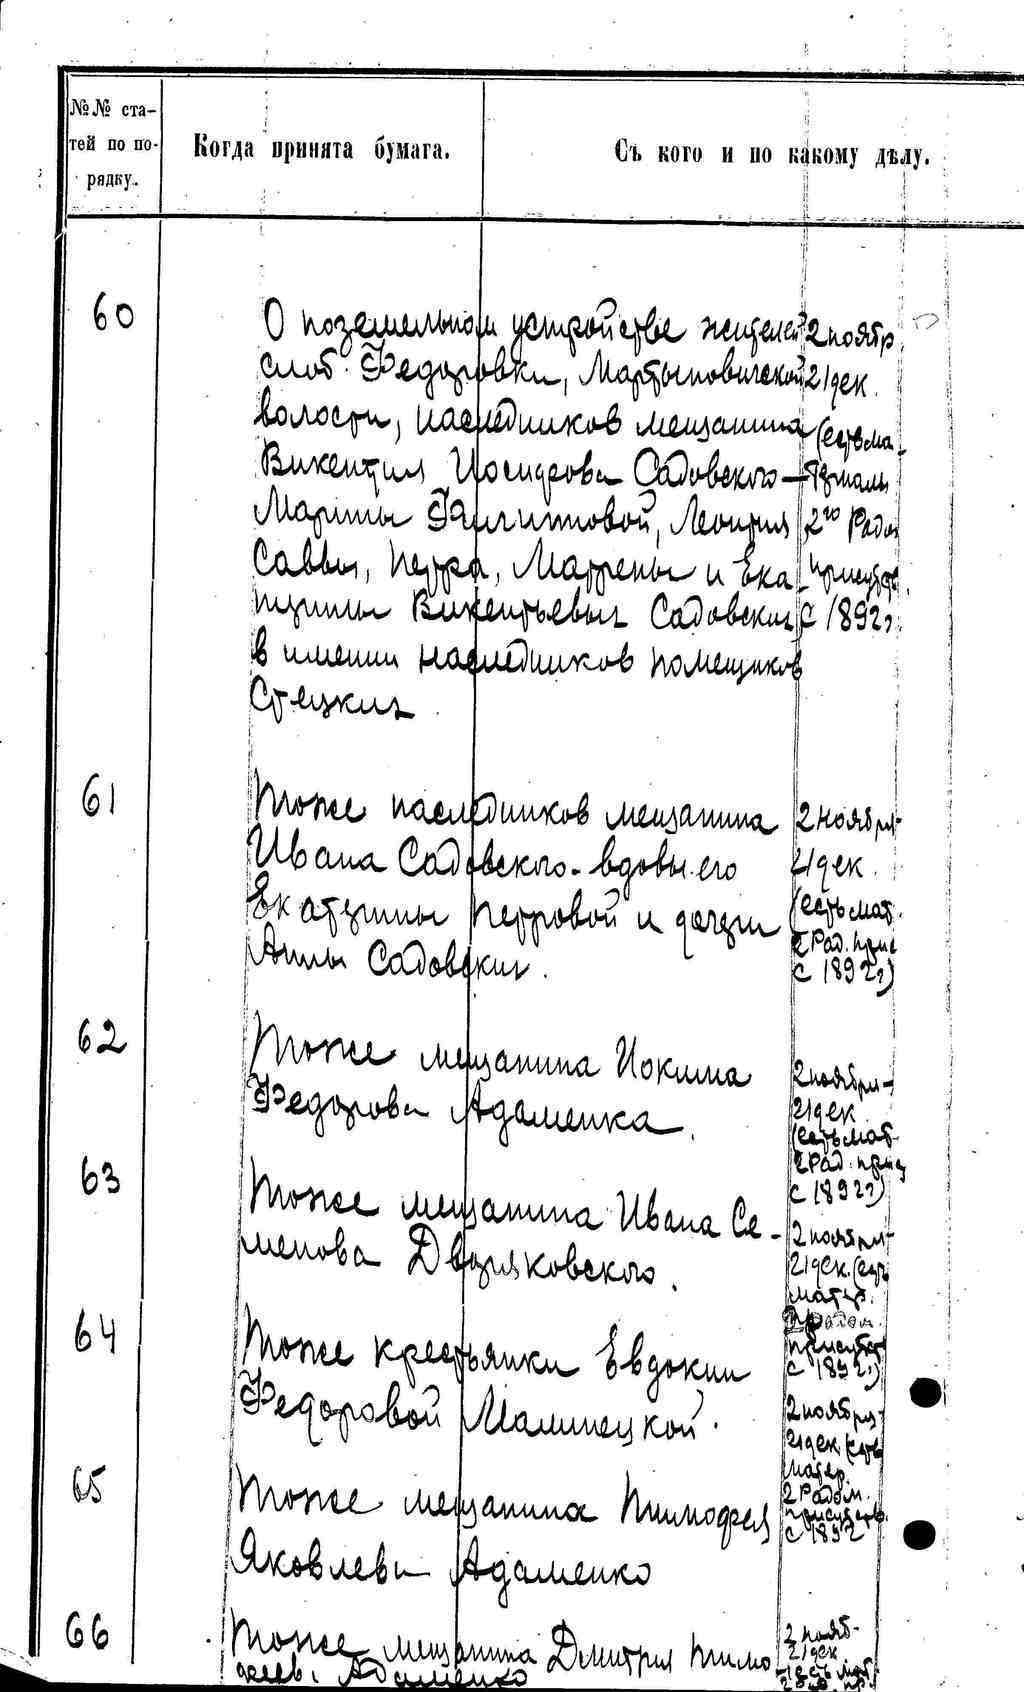 №№ ста-
тей по по-
рядку.
Когда принята бумага.
Съ кого и по какому дѣлу.
60
О поземельном устройстве жителей
слоб. Федоровки, Мартыновичской
волости, наследников мещанина
Викентия Иосифова Садовского —
Марины Филипповой, Леонтия,
Саввы, Петра, Матрены и Ека-
терины Викентьевых Садовских
в имении наследников помещиков
Стецких
2 ноябр
21 дек.
(есть ма-
териалы
2го Радом
присутств.
с 1892 г.
61
Тоже наследников мещанина
Ивана Садовского - вдовы его
Екатерины Петровой и дочери
Анны Садовских.
2 ноября-
21 дек.
(есть мат.
2 Рад. прис
с 1892 г)
62
Тоже мещанина Иокима
Федорова Адаменка.
2 ноября-
21 дек.
(есть мат.
2 Рад. прис
с 1892 г)
63
Тоже мещанина Ивана Се-
менова Двораковского.
2 ноября-
21 дек. (есть
матер.
2 Радом.
присутст
с 1892 г)
64
Тоже крестьянки Евдокии
Федоровой Малинецкой.
2 ноября-
21 дек. (есть
матер.
2 Радом.
присутств.
с 1892
65
Тоже мещанина Тимофея
Яковлева Адаменко
66
Тоже мещанина Дмитрия Тимо
феев. Адаменко
2 нояб-
21 дек
есть мат
2 Рад. пр.